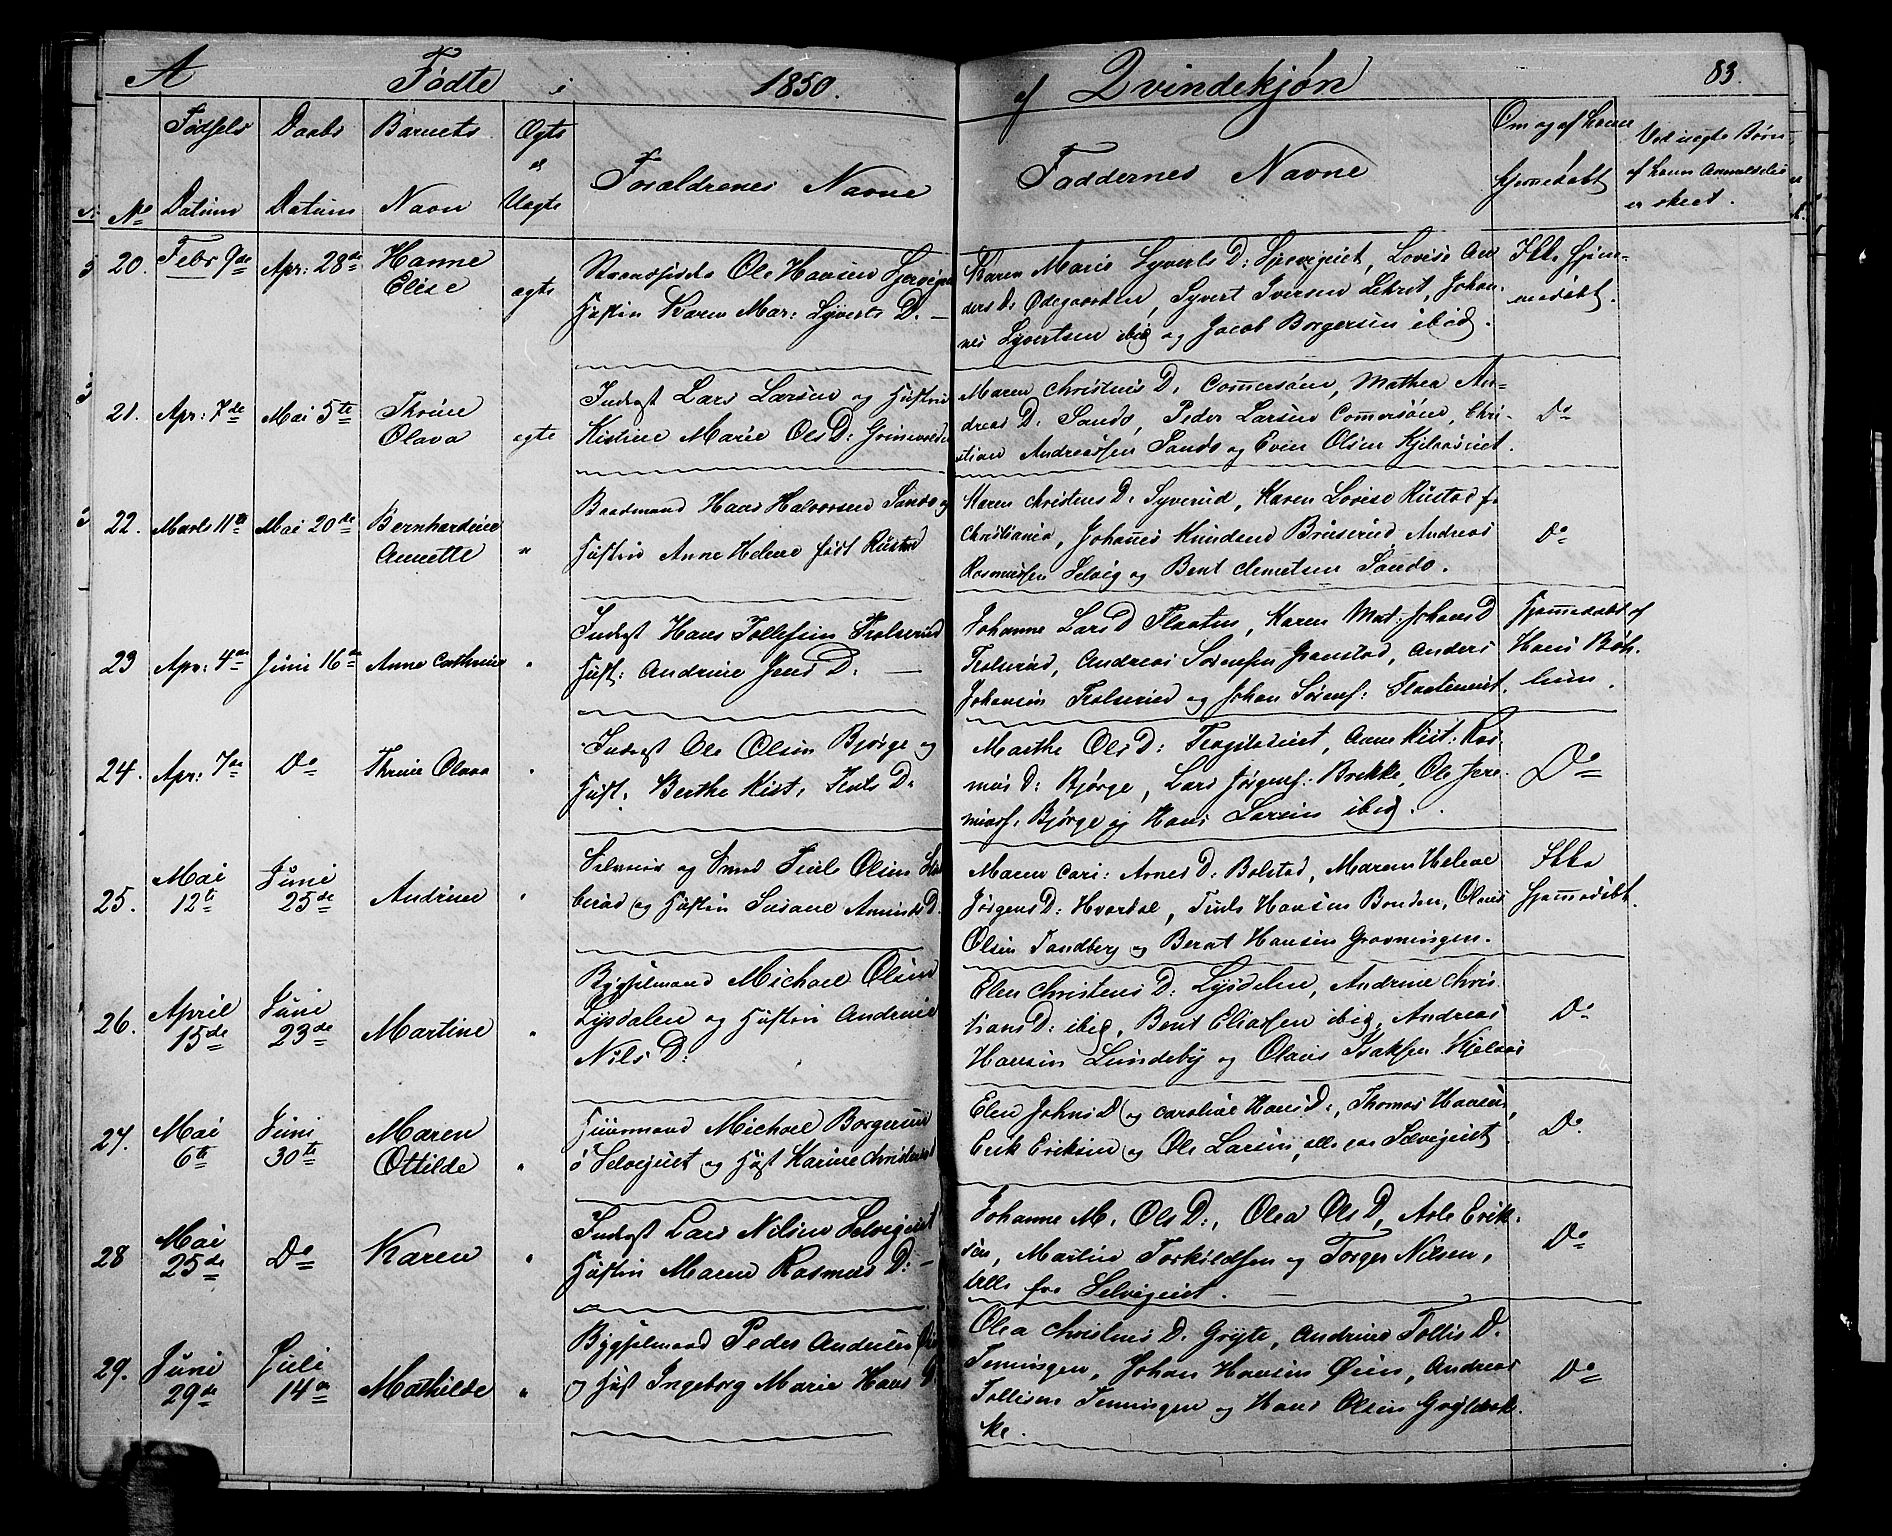 A Födte i 1850. af Qvindekjøn 83.
No Födsels Datum Daabs Datum Barnets Navn Ægte el Uægte Foræld­renes Navne Faddernes Navne Om og af hvem hjemmedøbt Ved uægte Børn af hvem Anmeldelse er skeet.
20. Febr 9de Apr: 28de Hanne Elise ægte
Strandsidder Ole Hansen
Hustru Karen Mar: Syverts D. —
Karen Marie Syverts D: Lovise An-
ders D: Ødegaarden, Syvert Iversen Johan-
nes Syvertsen ibid og Jacob Borgersen ibid.
Ikke Hjem-
medöbt.
21. Apr: 7de Mai 5te Thrine Olava ægte
Inderst Lars Larsen og Hustru
Kistine Marie Ols D:
Maren Christens D. Commersöen, Mathea An-
dreas D. Sando, Peder Larsen Commersöen, Chri-
stian Andreassen Sando og Even Olsen
Do
22. Marts 11te Mai 20de Bernhardine Annette "
Baadmand Hans Halvorsen Sando og
Hustru Anne Helene födt Rustad
Karen Christens D. Syverud, Karen Lovise Rustad fr
Christiania, Johannes Knudsen Bruserud, Andreas
Rasmussen Selvig og Bent Clemetsen Sando.
Do
23 Apr: 4de Juni 16de Anne Cathrine "
Inderst Hans Tollefsen Trolserud
Hust: Andrine Jens D. —
Johanne Lars D Flaaten, Karen Mat: Johans D
Trolserud, Andreas Sörensen Granstad, Anders
Johansen Trolserud og Johan Sörens:
Hjemmedøbt af
Hans Böh-
lum.
24. Apr: 7de Do Thrine Olava "
Inderst Ole Olsen Björge og
Hust. Berthe Kist. D.
Marthe Ols D: Anne Kist: Ras-
mus D: Björge, Lars Jörgens: Brekke, Ole Jere-
mias: Björge og Hans Larsen ibid.
Do
25. Mai 12te Juni 25de Andrine "
Selveier og Smed Truls Olsen
og Hustru Susane D.
Maren Cari: Arnes D: Bolstad, Maren Helene
Jörgens D: Truls Hansen Bonden, Olaus
Olsen Sandberg og Berat Hansen Gravningen.
Ikke
Hjemmedöbt.
26. April 15de Juni 23de Martine "
Bygselmand Michael Olsen
Lysdalen og Hustru Andrine
Nils D:
Elen Christens D: Lysdalen, Andrine Chris-
tians D: ibid, Bent Eliassen ibid, Andreas
Hansen Lundeby og Olaus Isaksen Kjelaas
Do
27. Mai 6te Juni 30te Maren Ottilde "
Huusmand Michael Borgersen
og Hust Karine
Elen Johns D og Caroline Hans D:, Thomas Hansen,
Erik Eriksen og Ole Larsen, alle paa Selvigeiet
Do.
28 Mai 25de Do Karen "
Inderst Lars Nilsen Selvigeiet
Hustru Maren Rasmus D: —
Johanne M. Ols D:, Olea Ols D, Asle Erik-
sen, Martin Torkildsen og Torger Nilsen,
alle fra Selvigeiet. —
Do
29. Juni 29de Juli 14de Mathilde "
Bygselmand Peder Andersen
og Hust Ingeborg Marie Hans D
Olea Christens D. Gryte, Andrine Tollis D.
Tenningen, Johan Hansen Öien, Andreas
Tollisen Tenningen og Hans Olsen
ke.
Do